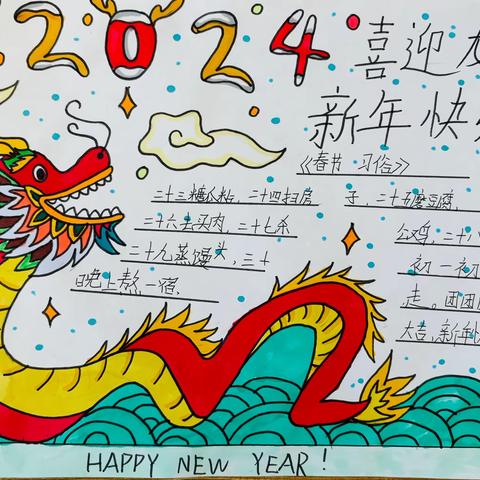 2024
喜迎
新年快
《春节 习俗》
二十三糖瓜粘，二十四扫房子，二十五磨豆腐，
二十六去买肉，二十七杀公鸡，二十八
二十九蒸馒头，三十
晚上熬一宿，
初一初
走。团团
大吉，新年快
HAPPY NEW YEAR!